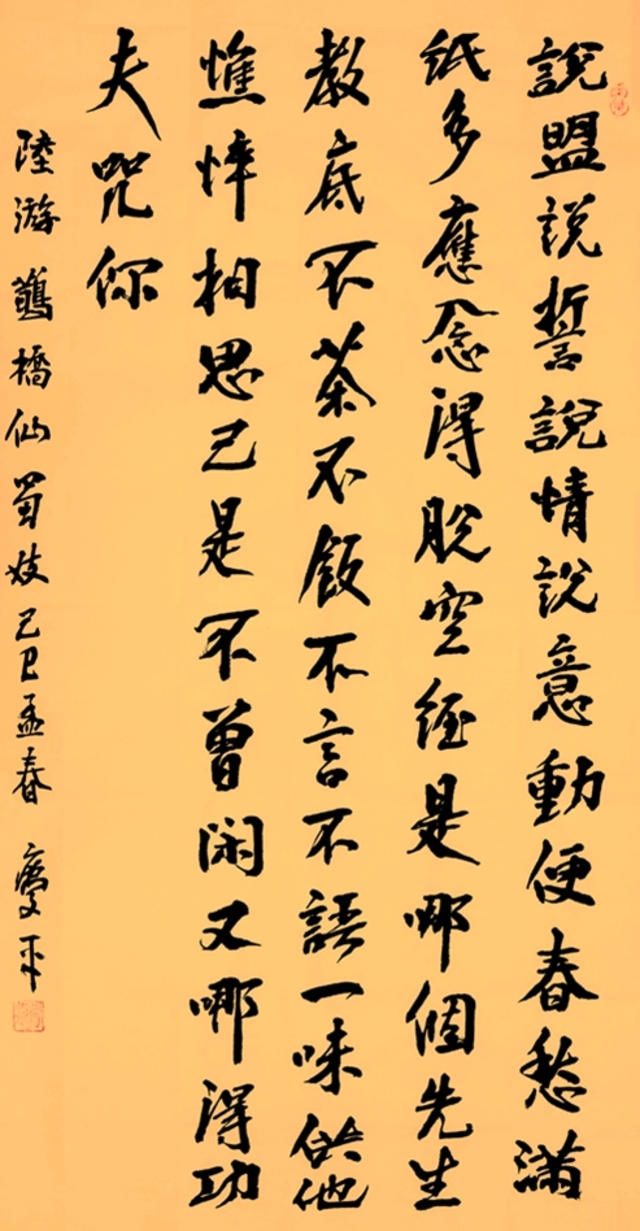 說盟説誓說情説意動便春愁滿
紙多應念得脱空經是哪個先生
教底不茶不飯不言不語一味供他
憔悴相思已是不曾閑又哪得功
夫咒你
陸游鵲橋仙蜀妓己巳孟春